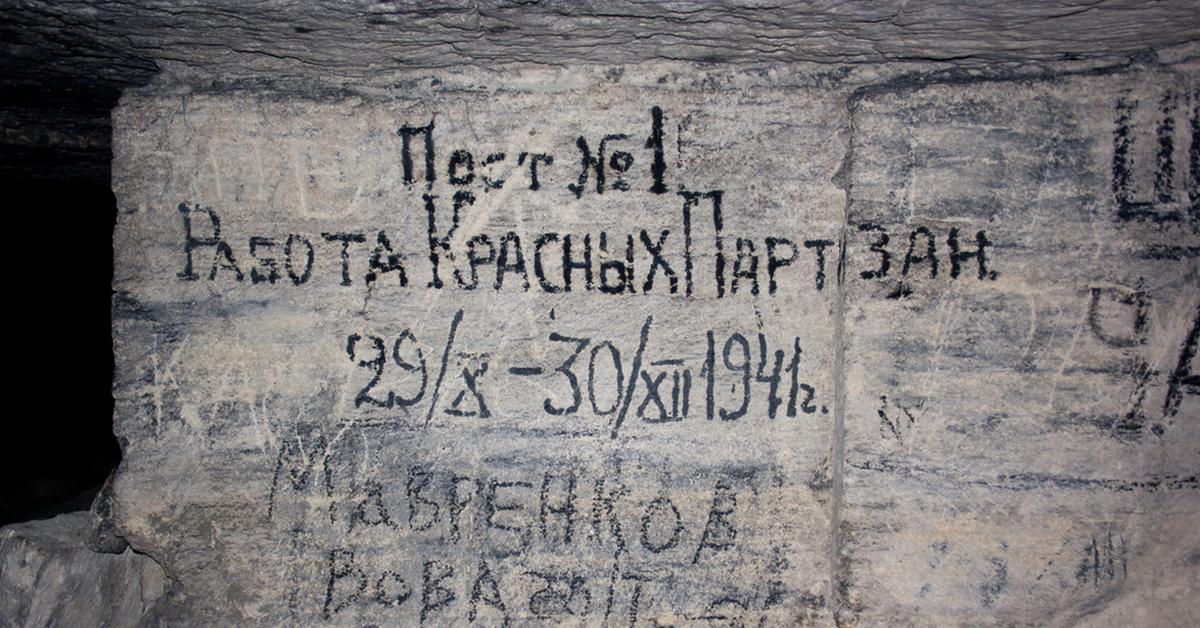 Пост №1
Работа Красных Партзан.
29/X - 30/XII 1941г.
Мавренков
Вова